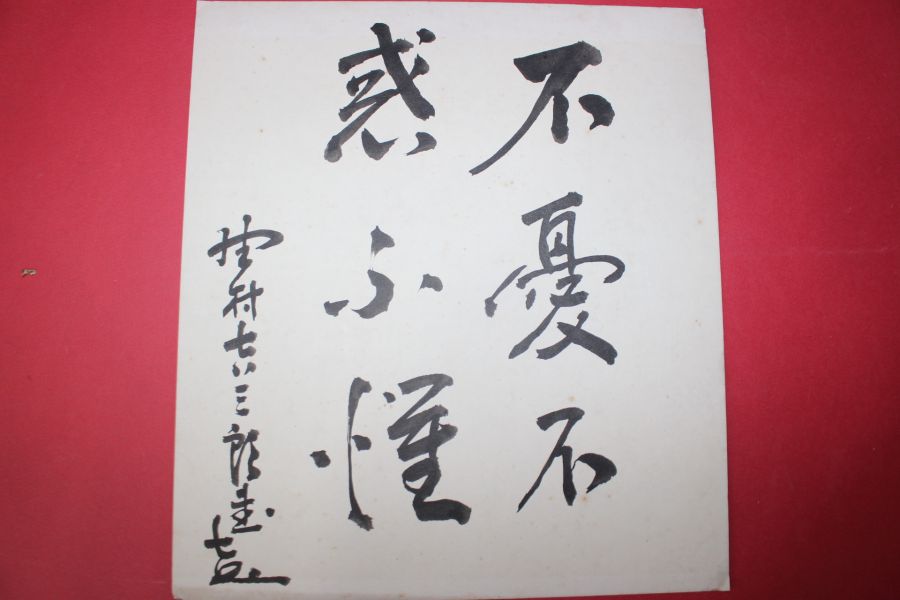 不憂不
惑不懼
野村七三郎書